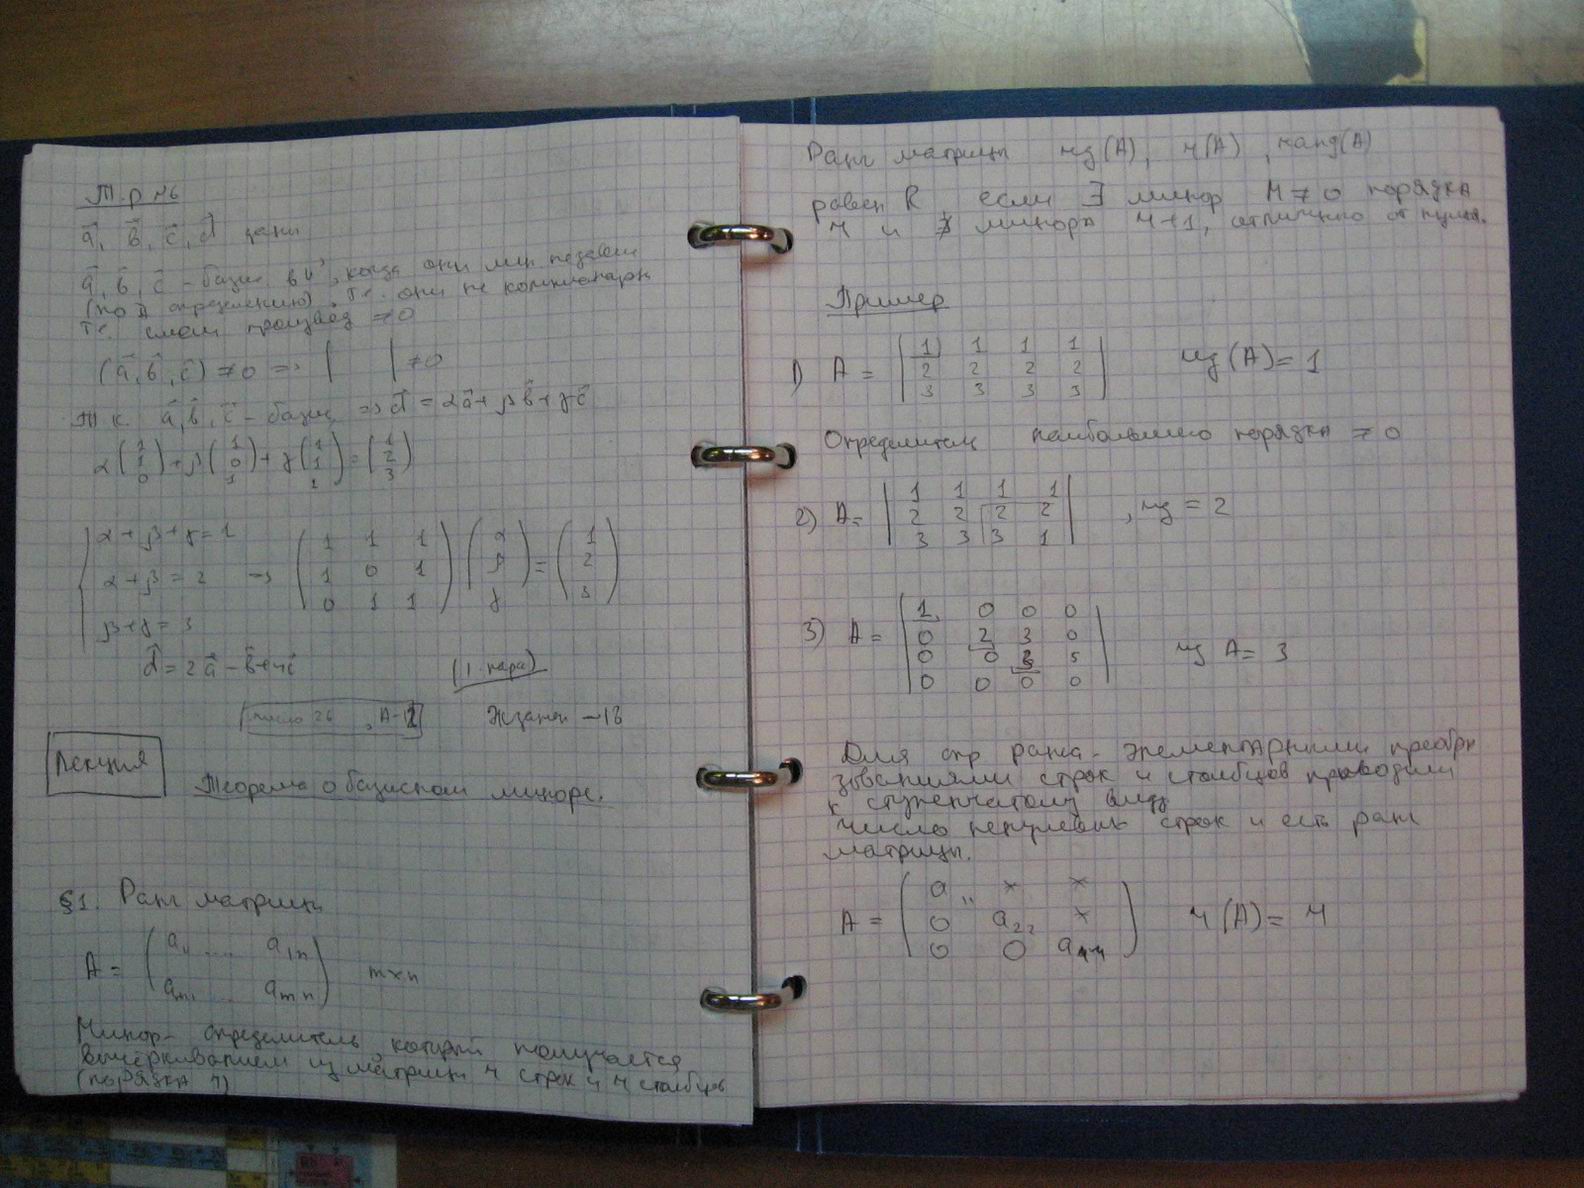 Т.р №6
a⃗, b⃗, c⃗, d⃗ даны
a⃗, b⃗, c⃗ - базис в V³, когда они лин независим
(по определению). Т.е. они не компланарн
т.е. смеш произвед ≠ 0
(a⃗, b⃗, c⃗) ≠ 0 => | | ≠ 0
Т.к. a⃗, b⃗, c⃗ - базис => d⃗ = αa⃗ + βb⃗ + γc⃗
α(1 1 0) + β(1 0 1) + γ(1 1 1) = (1 2 3)
α + β + γ = 1
α + β = 2
β + γ = 3
1 1 1
1 0 1
0 1 1
α β γ
=
1 2 3
d⃗ = 2a⃗ - b⃗ +
(1 пара)
число 26, А-12
Экзамен - 18
Лекция
Теорема о базисном миноре.
§1. Ранг матрицы
A = ( a₁₁ .... a₁ₙ
aₘ₁ ... aₘₙ ) m×n
Минор - определитель который получается
вычёркиванием из матрицы r строк и r столбцов
(порядка r)
Ранг матрицы rg(A), r(A), rang(A)
равен R, если ∃ минор M ≠ 0 порядка
r и ∄ минора r+1, отличного от нуля.
Пример
1) A = | 1 1 1 1
2 2 2 2
3 3 3 3 | rg(A) = 1
Определитель наибольшего порядка ≠ 0
2) A = | 1 1 1 1
2 2 2 2
3 3 3 1 | , rg = 2
3) A = | 1 0 0 0
0 2 3 0
0 0 3 5
0 0 0 0 | rg A = 3
Для опр ранга - элементарными преобра
зованиями строк и столбцов приводим
к ступенчатому виду
Число ненулевых строк и есть ранг
матрицы.
A = ( a₁₁ × ×
0 a₂₂ ×
0 0 aᵣᵣ ) r(A) = r